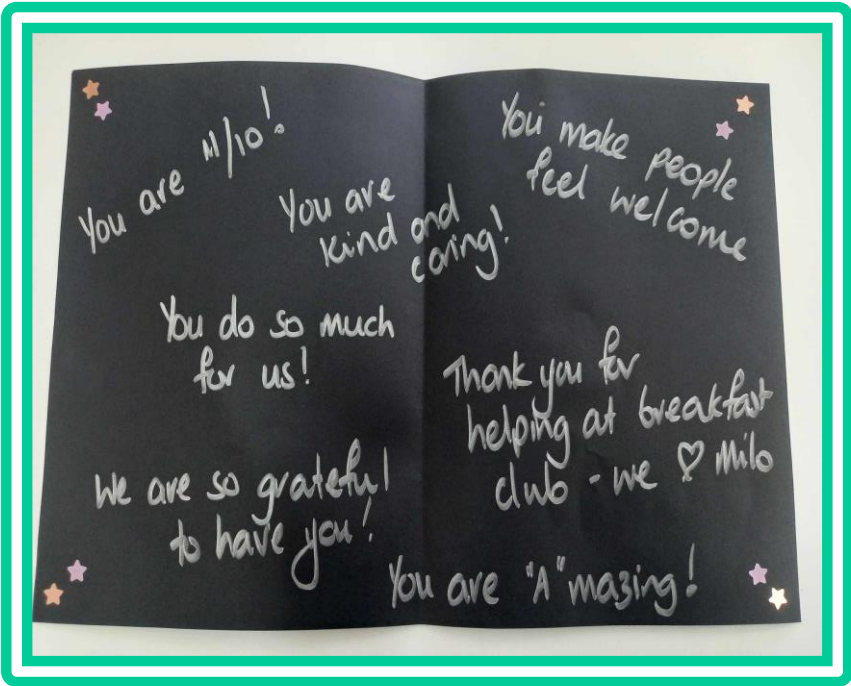 You are 11/10!
You are
kind and
caring!
You make people
feel welcome
You do so much
for us!
Thank you for
helping at breakfast
club - we ♡ Milo
We are so grateful
to have you!
You are "A"mazing!